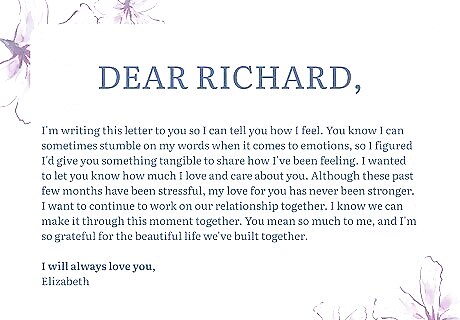 DEAR RICHARD,
I'm writing this letter to you so I can tell you how I feel. You know I can
sometimes stumble on my words when it comes to emotions, so I figured
I'd give you something tangible to share how I've been feeling. I wanted
to let you know how much I love and care about you. Although these past
few months have been stressful, my love for you has never been stronger.
I want to continue to work on our relationship together. I know we can
make it through this moment together. You mean so much to me, and I'm
so grateful for the beautiful life we've built together.
I will always love you,
Elizabeth